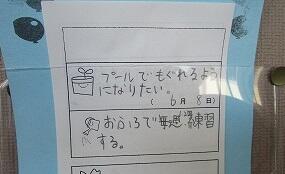 プールでもぐれるよう
になりたい。
( 6月 8日)
おふろで毎週練習
する。